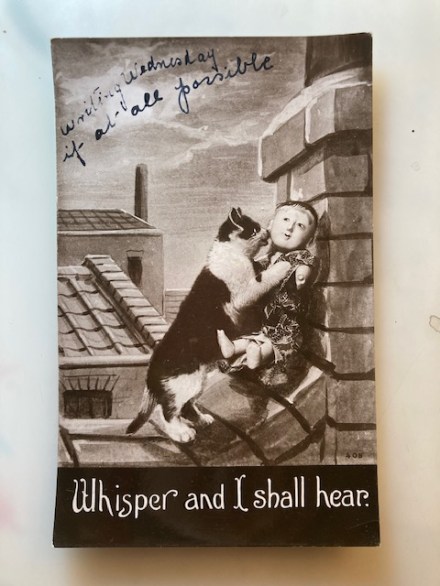 Writing Wednesday
if at all possible
Whisper and I shall hear.